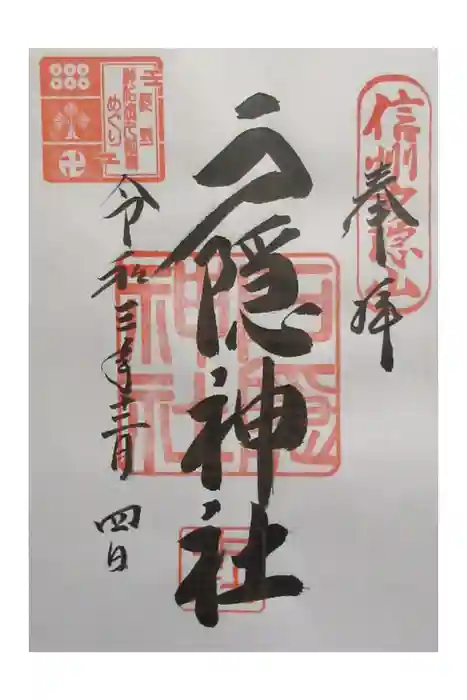 信州戸隠山
奉拝
戸隠神社
戸隠神社
令和三年十二月
四日
めぐり